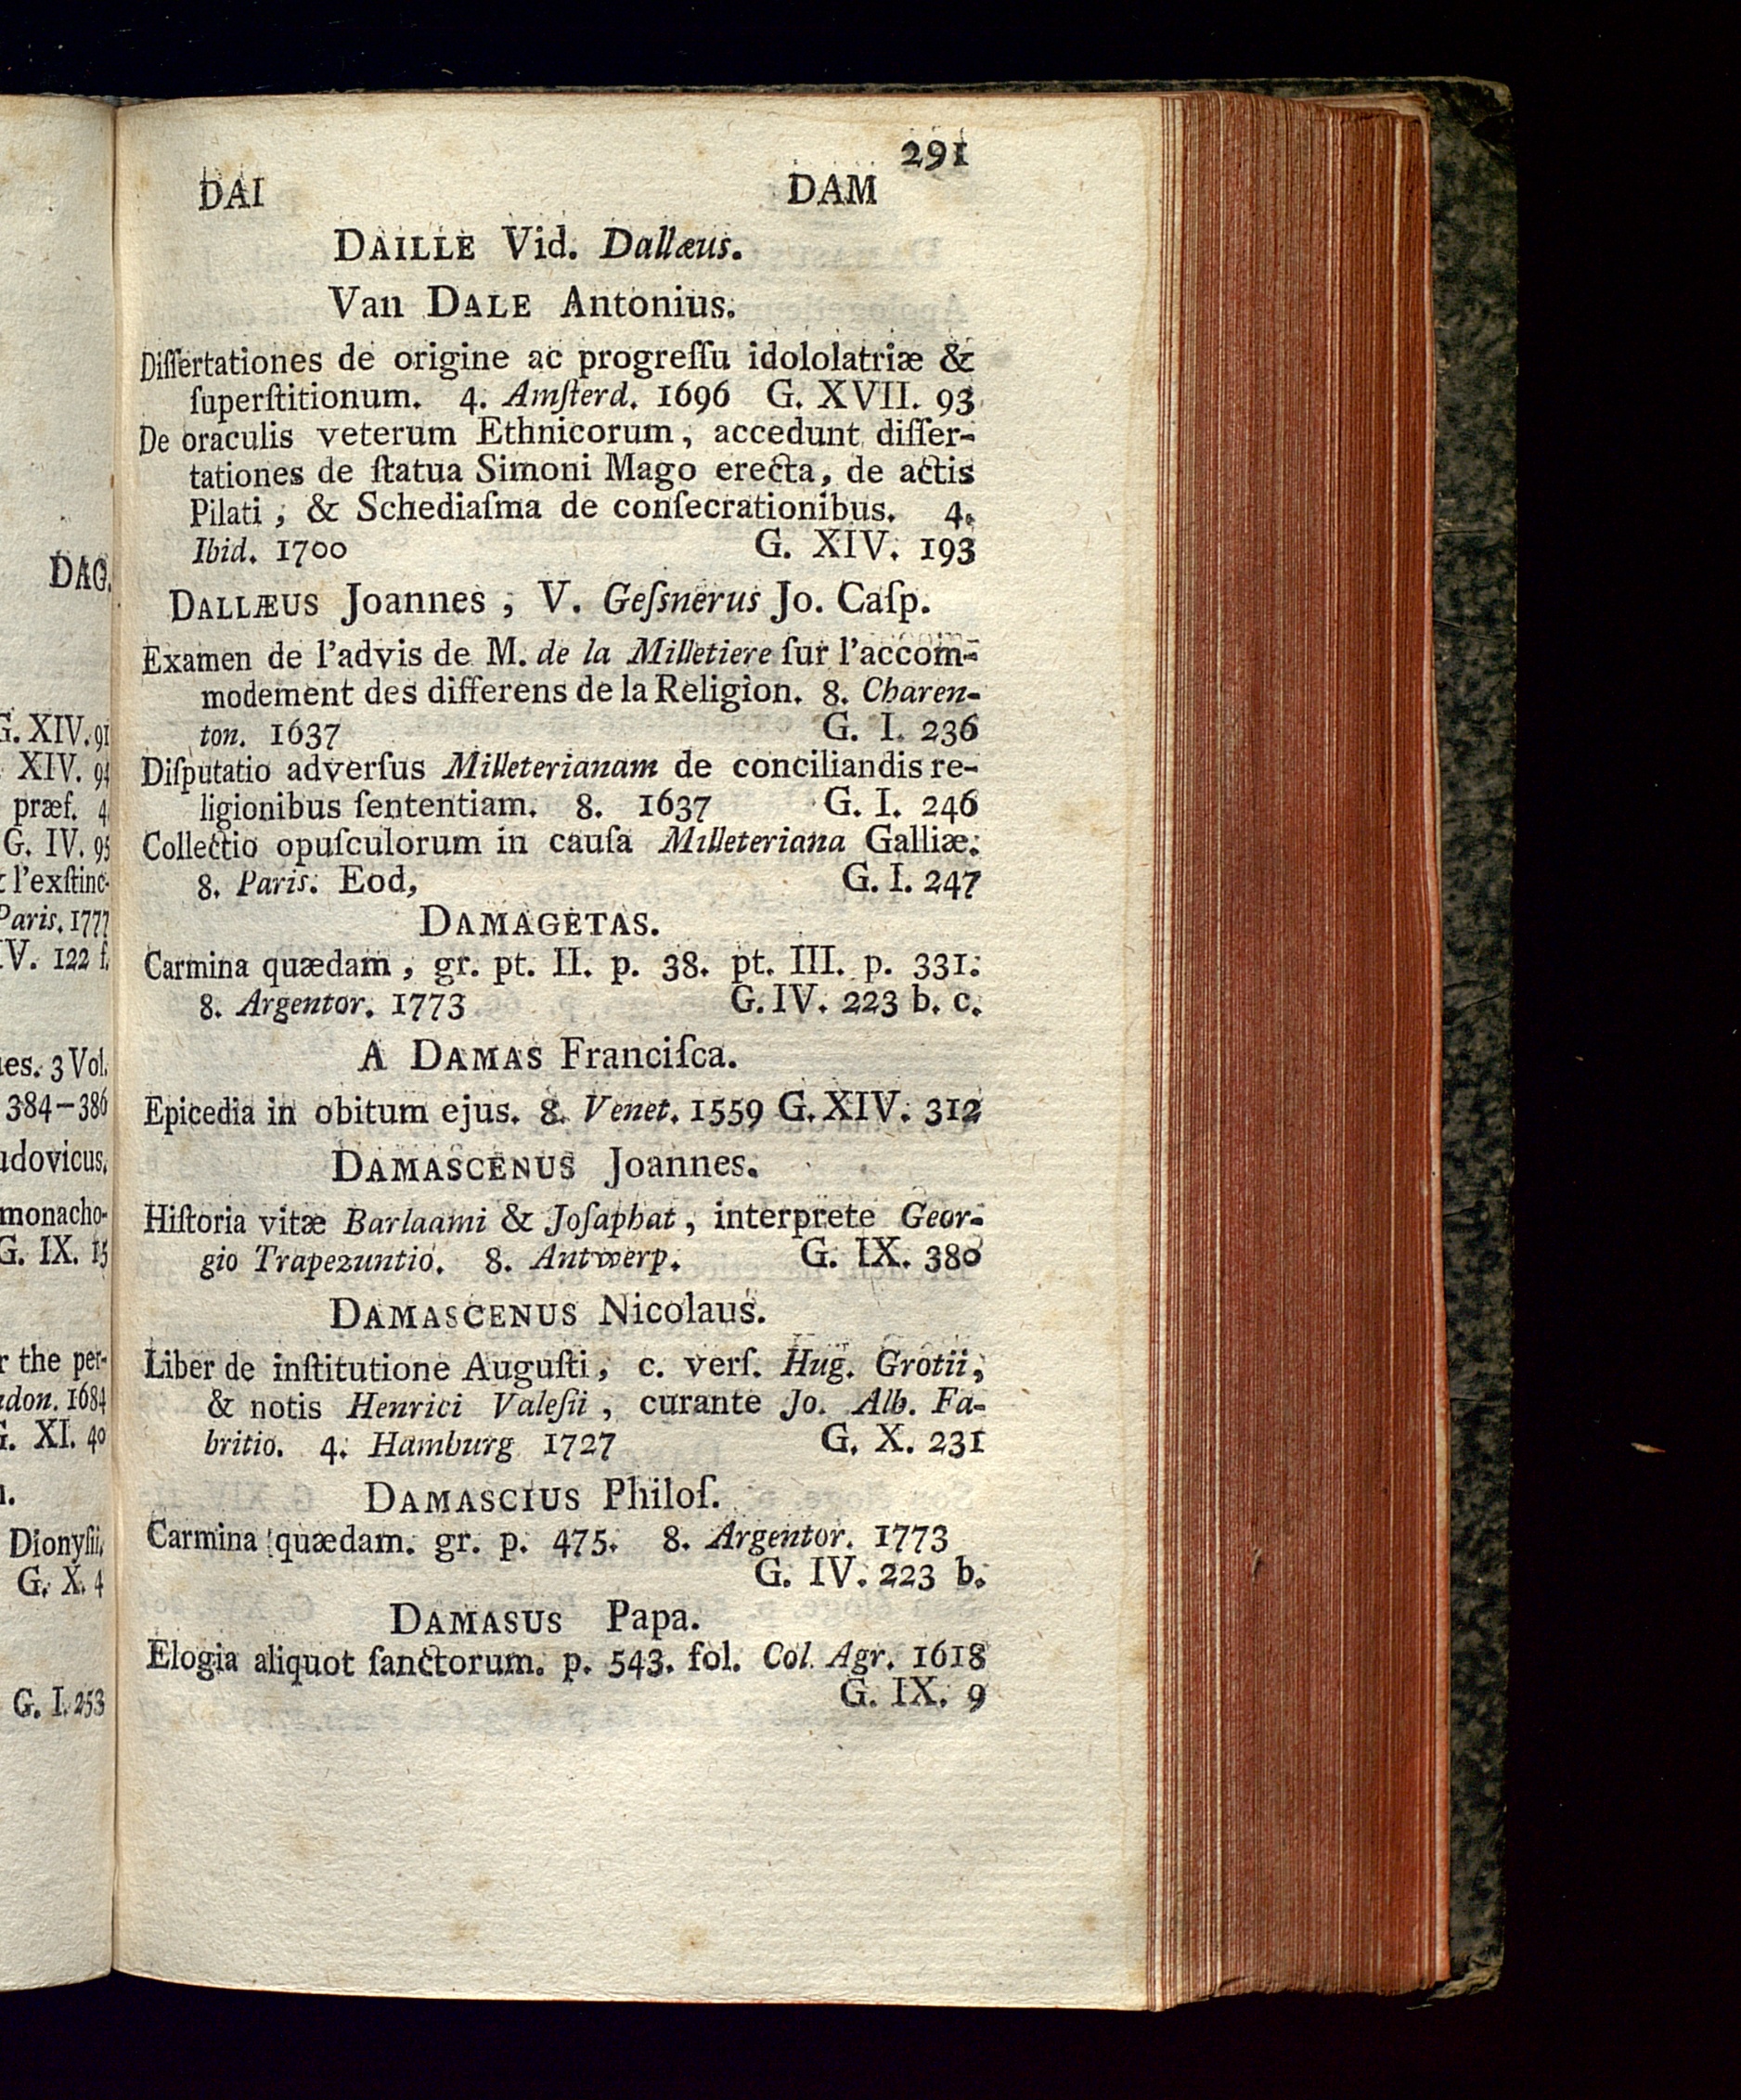 DAG.
G. XIV. 91
XIV. 94
præf. 4
G. IV. 95
l'exſtinc-
Paris. 1777
IV. 122 f.
es. 3 Vol.
384–386
udovicus.
monacho-
G. IX. 15
r the per-
ndon. 1684
G. XI. 40
Dionyſii,
G. X. 4
G. I. 253
291
DAI DAM
DAILLE Vid. Dallæus.
Van DALE Antonius.
Diſſertationes de origine ac progreſſu idololatriæ &
ſuperſtitionum. 4. Amſterd. 1696 G. XVII. 93
De oraculis veterum Ethnicorum, accedunt diſſer-
tationes de ſtatua Simoni Mago erecta, de actis
Pilati, & Schediaſma de conſecrationibus. 4.
Ibid. 1700 G. XIV. 193
DALLÆUS Joannes, V. Geſsnerus Jo. Caſp.
Examen de l'advis de M. de la Milletiere ſur l'accom-
modement des differens de la Religion. 8. Charen-
ton. 1637 G. I. 236
Diſputatio adverſus Milleterianam de conciliandis re-
ligionibus ſententiam. 8. 1637 G. I. 246
Collectio opuſculorum in cauſa Milleteriana Galliæ.
8. Paris. Eod, G. I. 247
DAMAGETAS.
Carmina quædam, gr. pt. II. p. 38. pt. III. p. 331.
8. Argentor. 1773 G. IV. 223 b. c.
A DAMAS Franciſca.
Epicedia in obitum ejus. 8. Venet. 1559 G. XIV. 312
DAMASCENUS Joannes.
Hiſtoria vitæ Barlaami & Joſaphat, interprete Geor-
gio Trapezuntio. 8. Antwerp. G. IX. 380
DAMASCENUS Nicolaus.
Liber de inſtitutione Auguſti, c. verſ. Hug. Grotii,
& notis Henrici Valeſii, curante Jo. Alb. Fa-
britio. 4. Hamburg 1727 G. X. 231
DAMASCIUS Philoſ.
Carmina quædam. gr. p. 475. 8. Argentor. 1773
G. IV. 223 b.
DAMASUS Papa.
Elogia aliquot ſanctorum. p. 543. fol. Col. Agr. 1618
G. IX. 9